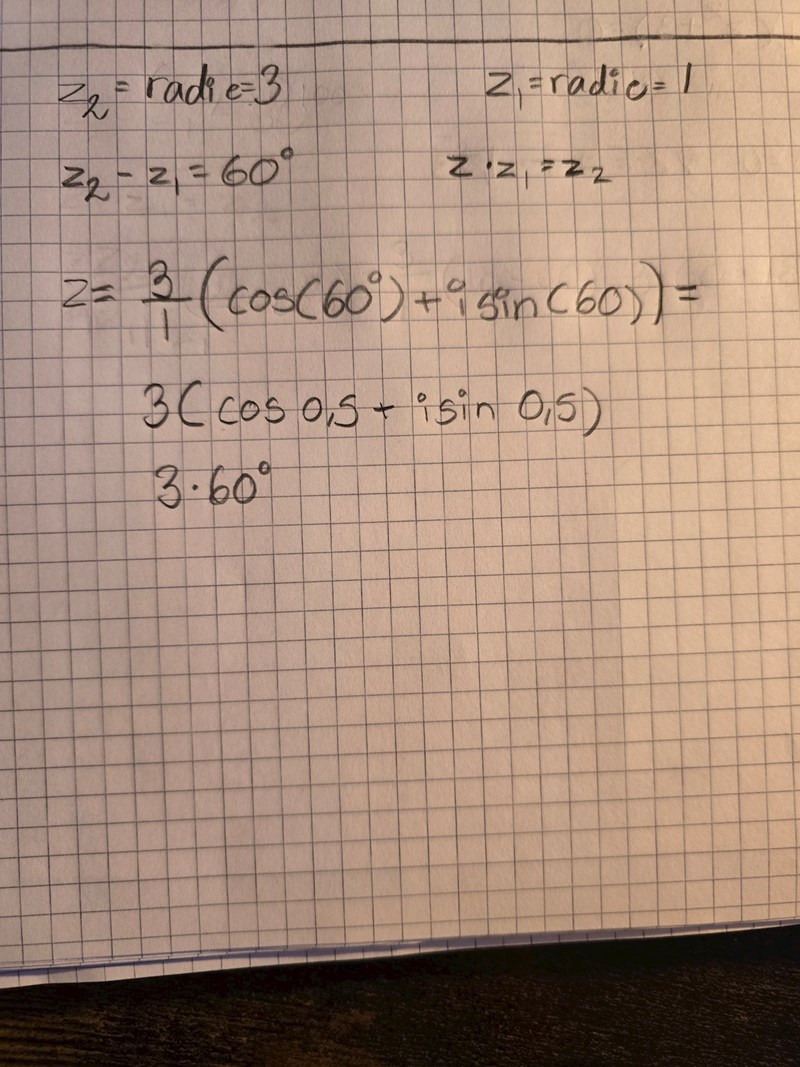 z₂ = radie=3 z₁=radie=1
z₂ - z₁ = 60° z·z₁=z₂
z= 3/1 (cos(60°)+i sin(60))=
3(cos 0,5 + i sin 0,5)
3·60°